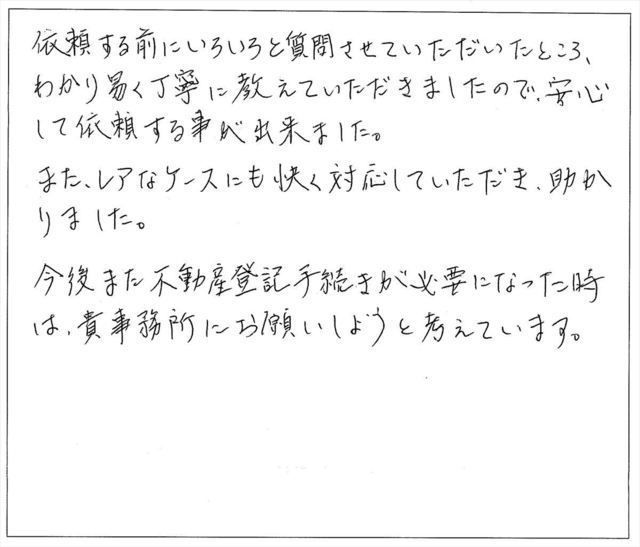 依頼する前にいろいろと質問させていただいたところ、
わかり易く丁寧に教えていただきましたので、安心
して依頼する事が出来ました。
また、レアなケースにも快く対応していただき、助か
りました。
今後また不動産登記手続きが必要になった時
は、貴事務所にお願いしようと考えています。